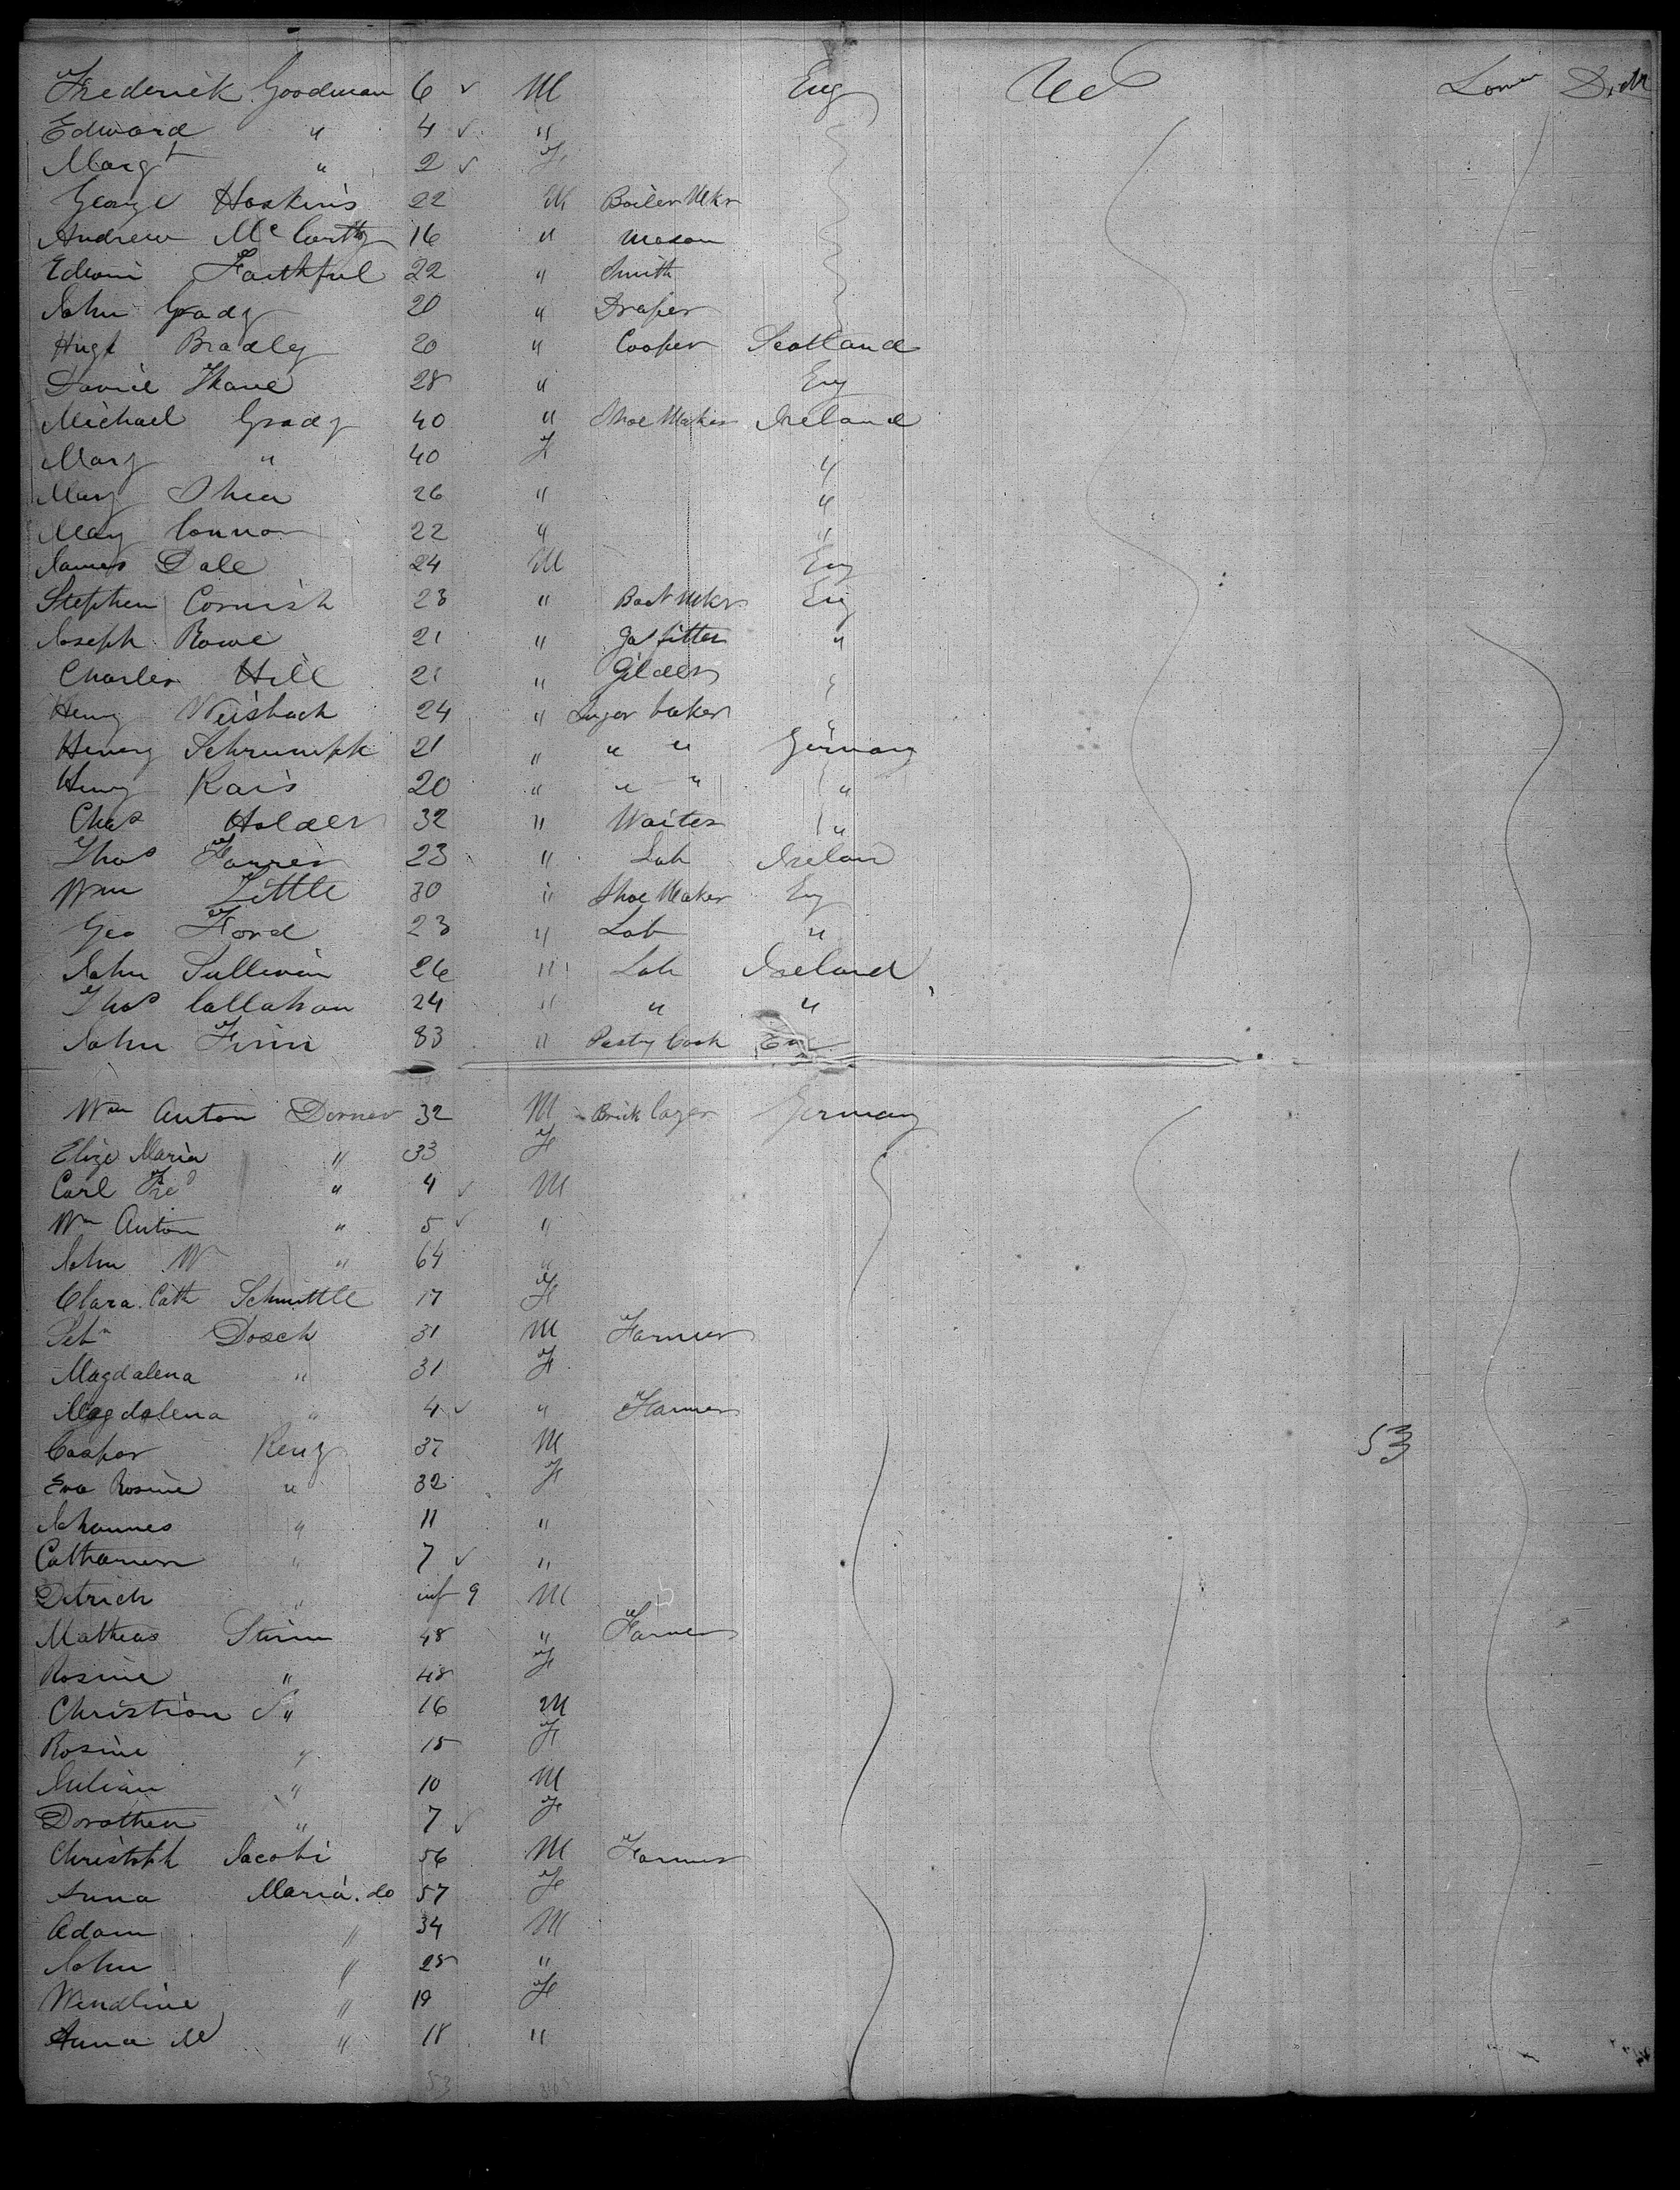 Frederick Goodman 6 ✓ M Eng U S Lower Deck
Edward " 4 ✓ "
Margt " 2 ✓ F
George Hoskins 22 M Boiler Mkr
Andrew McCarthy 16 " Mason
Edwin Faithful 22 " Smith
John Grady 20 " Draper
Hugh Bradley 20 " Cooper Scotland
28 " Eng
Michael Grady 40 " Shoe Maker Ireland
Mary " 40 F "
Mary Shea 26 " "
May Connor 22 " "
James Dale 24 M Eng
Stephen Cornish 23 " Boot Mkr Eng
Joseph Rowe 21 " Gas fitter "
Charles Hill 21 " Gilder
Henry Weisbach 24 " Sugar baker
Henry Schrumpk 21 " " " Germany
Henry Kais 20 " " " "
Chas Holder 32 " Waiter "
Thos Farrer 23 " Lab Irelan
Wm Little 30 " Shoe Maker Eng
Geo Ford 23 " Lab "
John Sullivan 26 " Lab Ireland
Thos Callahan 24 " " "
John Finn 83 " Pastry Cook Eng
Wm Anton Dorner 32 M Brick layer Germany
Elize Maria " 33 F
Carl Fred " 4 ✓ M
Wm Anton " 5 ✓ "
John W " 64 "
Clara Cath Schmittle 17 F
Sebn Dosch 31 M Farmer
Magdalena " 31 F
Magdalena " 4 ✓ " Farmer
Caspar Renz 37 M 53
Eva Rosine " 32 F
Johannes " 11 "
Catharien " 7 ✓ "
Detrich " inf 9 M
Mathias Stirm 48 " Farmer
Rosine " 48 F
Christian S " 16 M
Rosine " 15 F
Julian " 10 M
Dorothea " 7 ✓ F
Christoph Jacobi 56 M Farmer
Anna Maria do 57 F
Adam " 34 M
John " 28 "
Wendline " 19 F
Anna M " 18 "
53